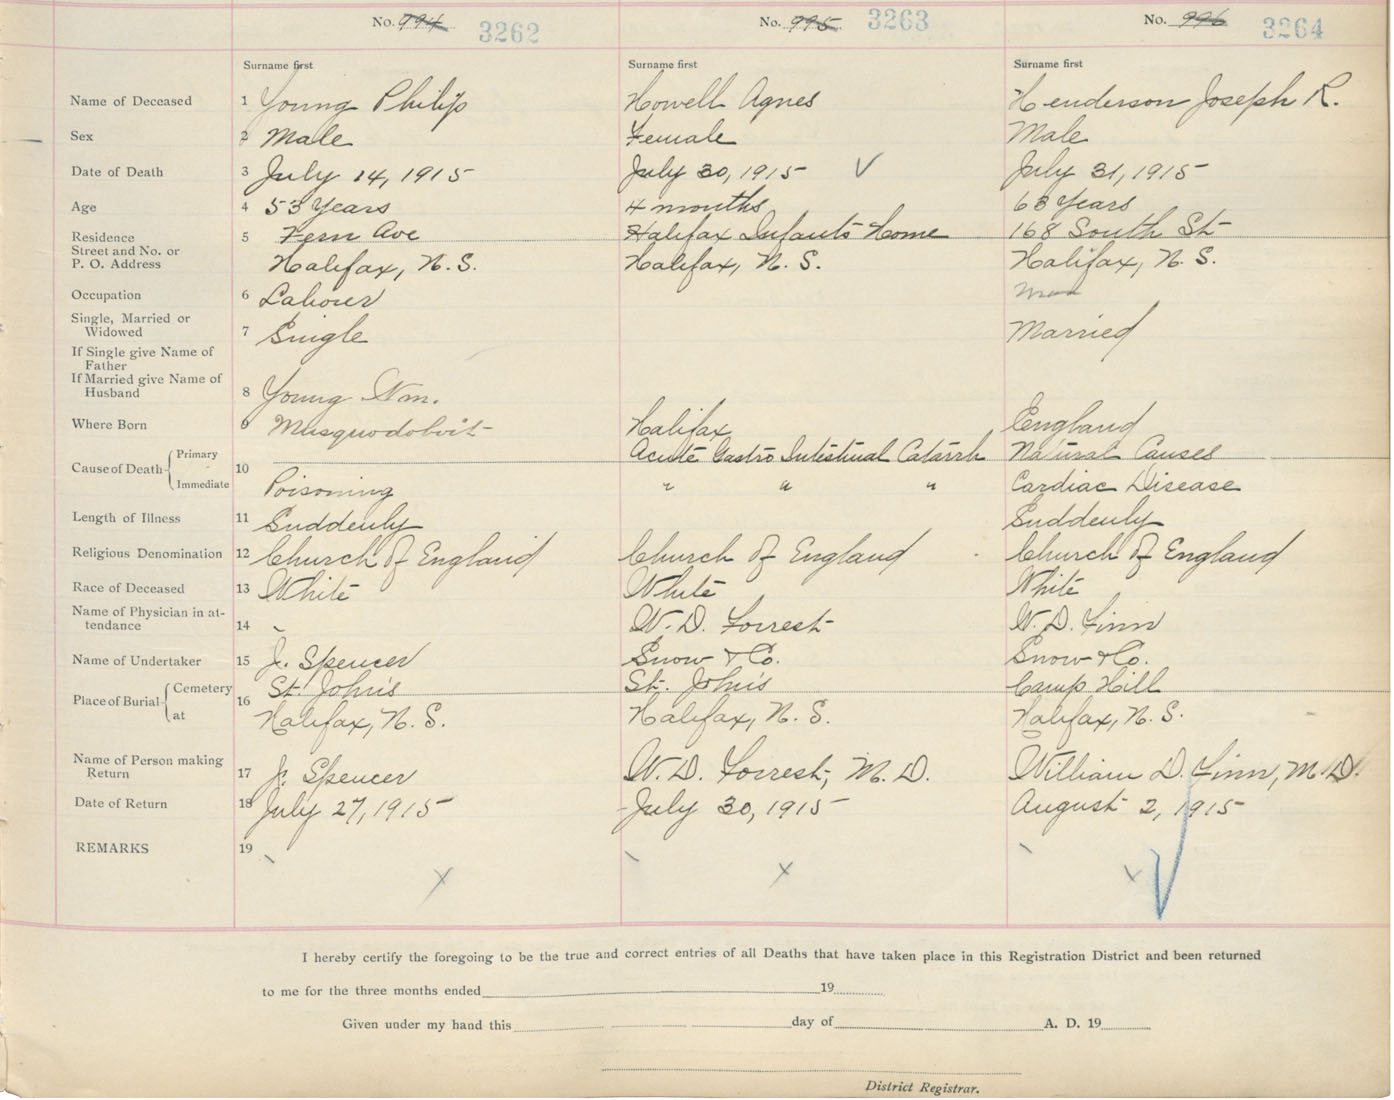 No. 994 3262 No. 995 3263 No. 996 3264
Surname first Surname first Surname first
Name of Deceased 1 Young Philip Howell Agnes Henderson Joseph R.
Sex 2 Male Female Male
Date of Death 3 July 14, 1915 July 30, 1915 July 31, 1915
Age 4 53 Years 4 months 63 Years
Residence 5 Fern Ave Halifax Infants Home 168 South St
Street and No. or
P. O. Address Halifax, N.S. Halifax, N.S. Halifax, N.S.
Occupation 6 Labourer
Single, Married or
Widowed 7 Single Married
If Single give Name of
Father
If Married give Name of
Husband 8 Young Wm.
Where Born 9 Musquodoboit Halifax England
Cause of Death Primary 10 Acute Gastro Intestinal Catarrh Natural Causes
Immediate Poisoning " " " Cardiac Disease
Length of Illness 11 Suddenly Suddenly
Religious Denomination 12 Church of England Church of England Church of England
Race of Deceased 13 White White White
Name of Physician in at-
tendance 14 W. D. Forrest W. D. Finn
Name of Undertaker 15 J. Spencer Snow & Co. Snow & Co.
Place of Burial Cemetery 16 St. John's St. John's Camp Hill
at Halifax, N.S. Halifax, N.S. Halifax, N.S.
Name of Person making
Return 17 J. Spencer W. D. Forrest, M.D. William D. Finn, M.D.
Date of Return 18 July 27, 1915 July 30, 1915 August 2, 1915
REMARKS 19
I hereby certify the foregoing to be the true and correct entries of all Deaths that have taken place in this Registration District and been returned
to me for the three months ended 19
Given under my hand this day of A. D. 19
District Registrar.